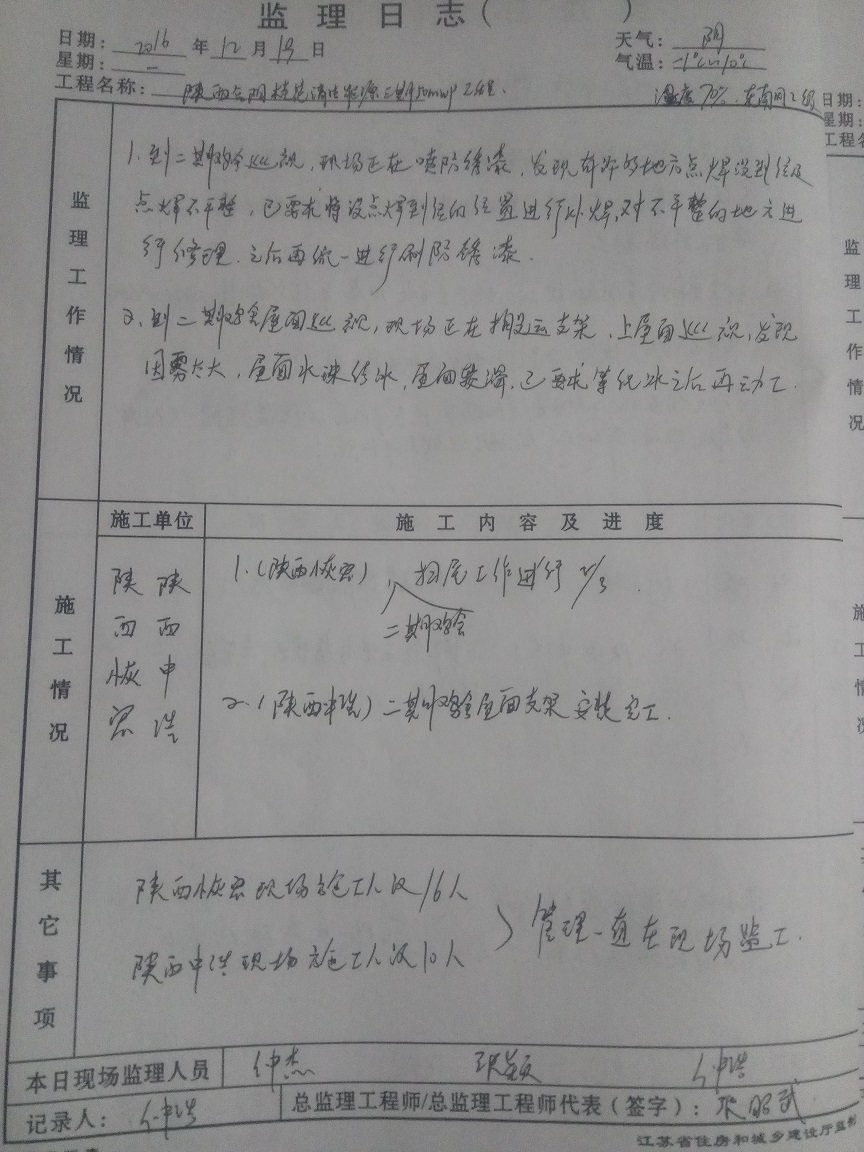 监理日志（ ）
日期：2016年12月19日 天气：阴
星期：一 气温：-1℃~10℃
工程名称：陕西合阳桂花清洁能源二期50mwp工程. 湿度70%.东南风2级
监理工作情况
1.到二期鸡舍巡视，现场正在喷防锈漆，发现有许的地方点焊没到位及
点焊不平整，已要求将没点焊到位的位置进行补焊，对不平整的地方进
行修理.之后再统一进行刷防锈漆.
2.到二期鸡舍屋面巡视，现场正在搬运支架，上屋面巡视，发现
因雾太大，屋面水珠结冰，屋面较滑，已要求等化冰之后再动工.
施工情况
施工单位 施工内容及进度
陕西恢宏 陕西中浩
1.（陕西恢宏），扫尾工作进行2/3.
二期鸡舍
2.（陕西中浩）二期鸡舍屋面支架安装完工.
其它事项
陕西恢宏现场施工人员16人
陕西中浩现场施工人员10人
管理一直在现场监工.
本日现场监理人员 仲杰 张颖 仲浩
记录人：仲浩 总监理工程师/总监理工程师代表（签字）：张昭武
江苏省住房和城乡建设厅监制
日期：
星期：
工程名
监
理
工
作
情
况
施
工
情
况